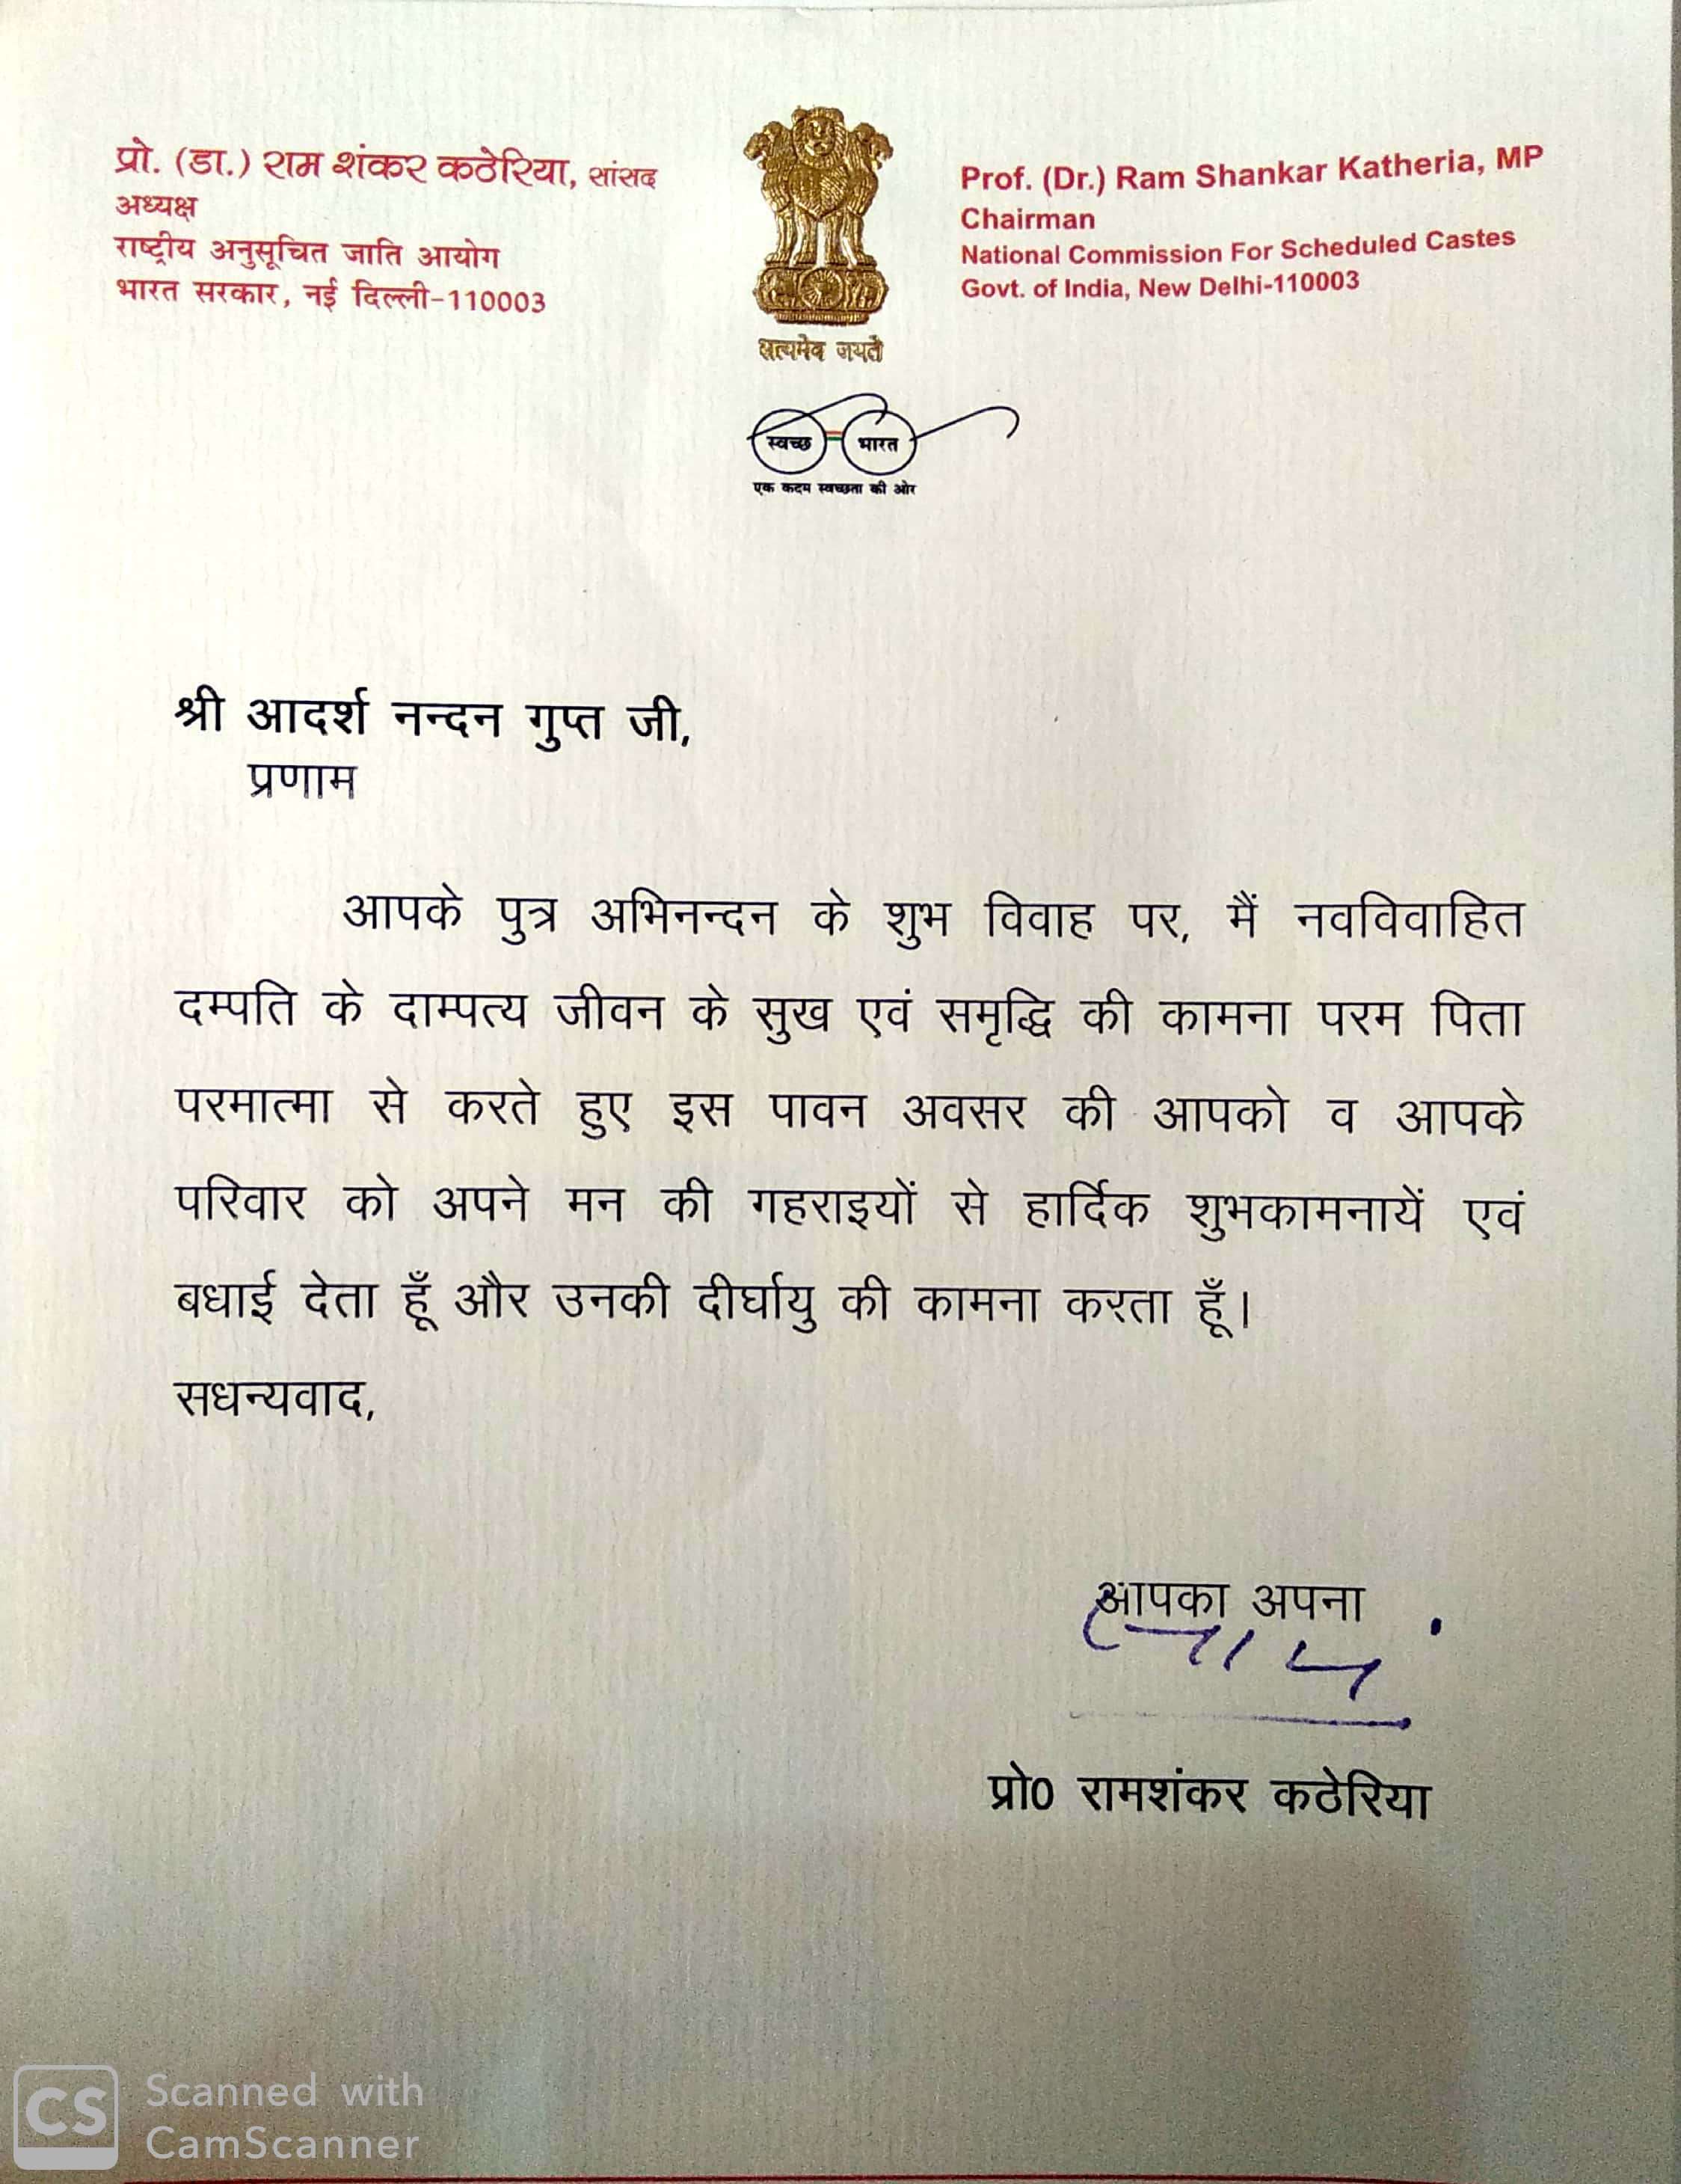 प्रो. (डा.) राम शंकर कठेरिया, सांसद
अध्यक्ष
राष्ट्रीय अनुसूचित जाति आयोग
भारत सरकार, नई दिल्ली-110003
सत्यमेव जयते
Prof. (Dr.) Ram Shankar Katheria, MP
Chairman
National Commission For Scheduled Castes
Govt. of India, New Delhi-110003
स्वच्छ भारत
एक कदम स्वच्छता की ओर
श्री आदर्श नन्दन गुप्त जी,
प्रणाम
आपके पुत्र अभिनन्दन के शुभ विवाह पर, मैं नवविवाहित
दम्पति के दाम्पत्य जीवन के सुख एवं समृद्धि की कामना परम पिता
परमात्मा से करते हुए इस पावन अवसर की आपको व आपके
परिवार को अपने मन की गहराइयों से हार्दिक शुभकामनायें एवं
बधाई देता हूँ और उनकी दीर्घायु की कामना करता हूँ।
सधन्यवाद,
आपका अपना
प्रो0 रामशंकर कठेरिया
CS Scanned with
CamScanner